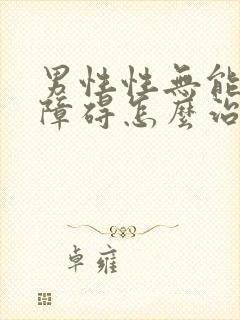 男性性無能
障碍怎麼治
卓雍